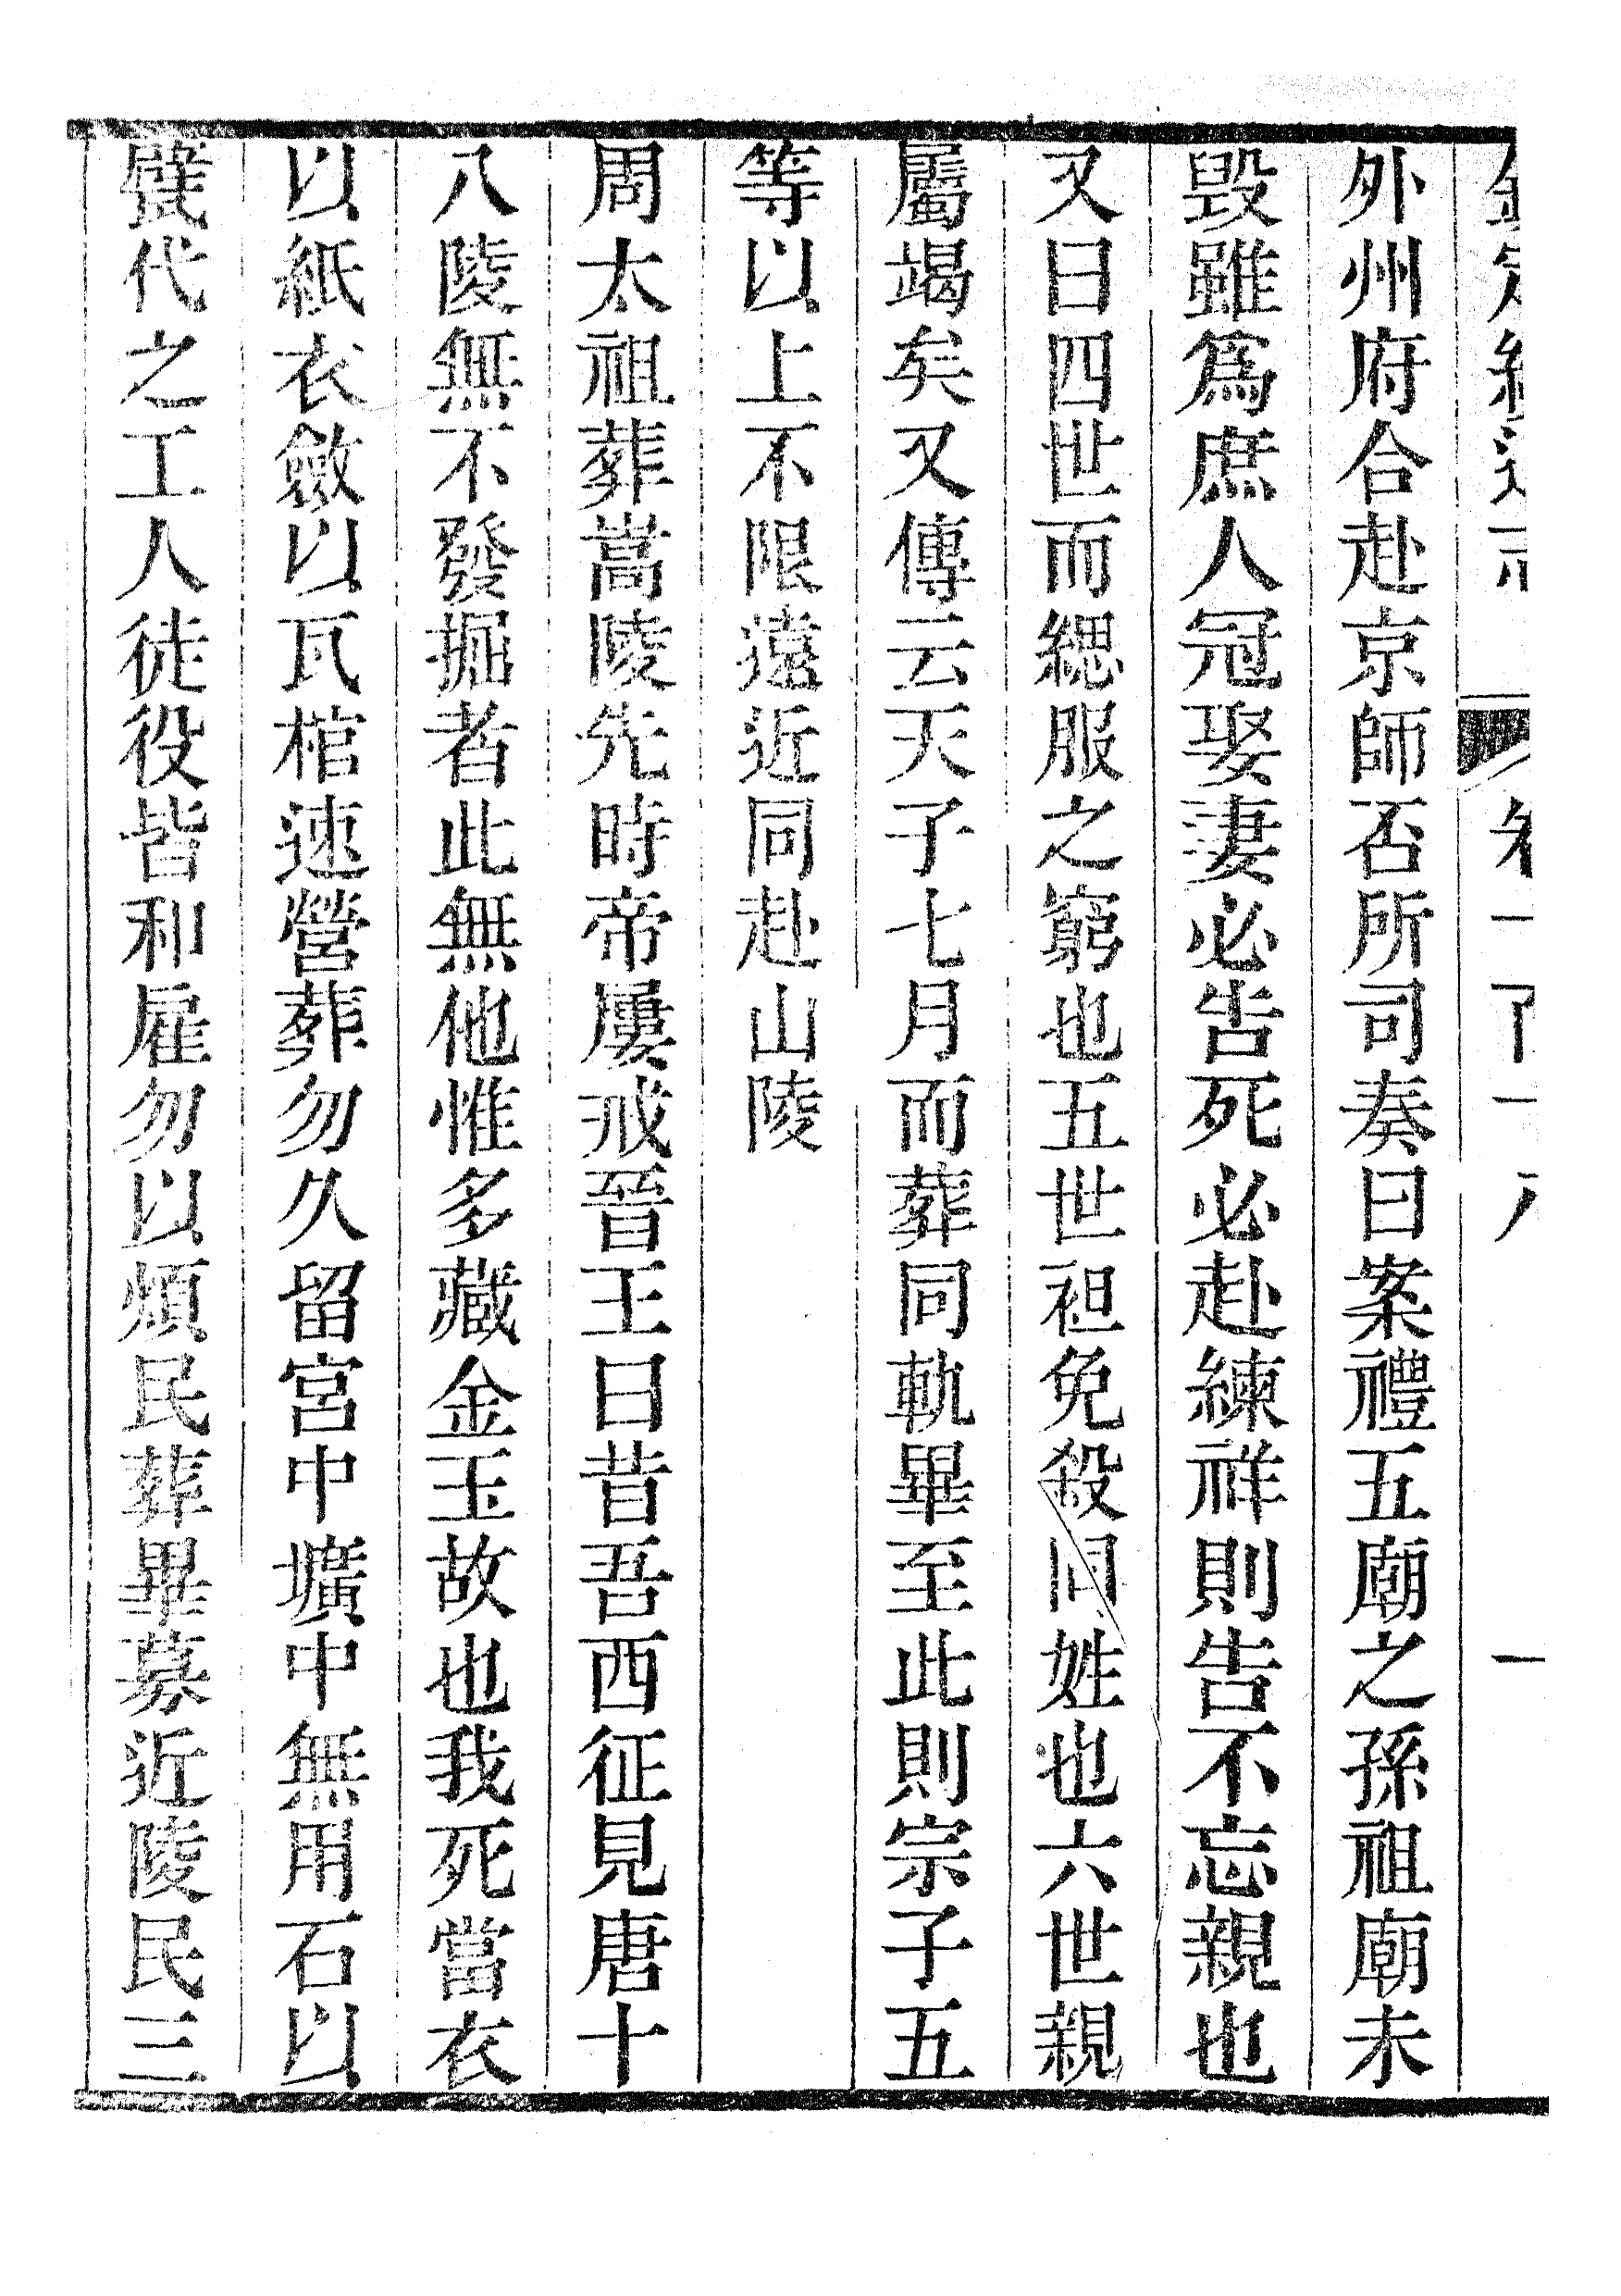 外州府合赴京師否所司奏曰案禮五廟之孫祖廟未
毀雖爲庶人冠娶妻必告死必赴練祥則告不忘親也
又曰四世而緦服之窮也五世袒免殺同姓也六世親
屬竭矣又傳云天子七月而葬同軌畢至此則宗子五
等以上不限遠近同赴山陵
周太祖葬嵩陵先時帝屢戒晉王曰昔吾西征見唐十
八陵無不發掘者此無他惟多藏金玉故也我死當衣
以紙衣斂以瓦棺速營葬勿久留宮中壙中無用石以
甓代之工人徒役皆和雇勿以煩民葬畢募近陵民三